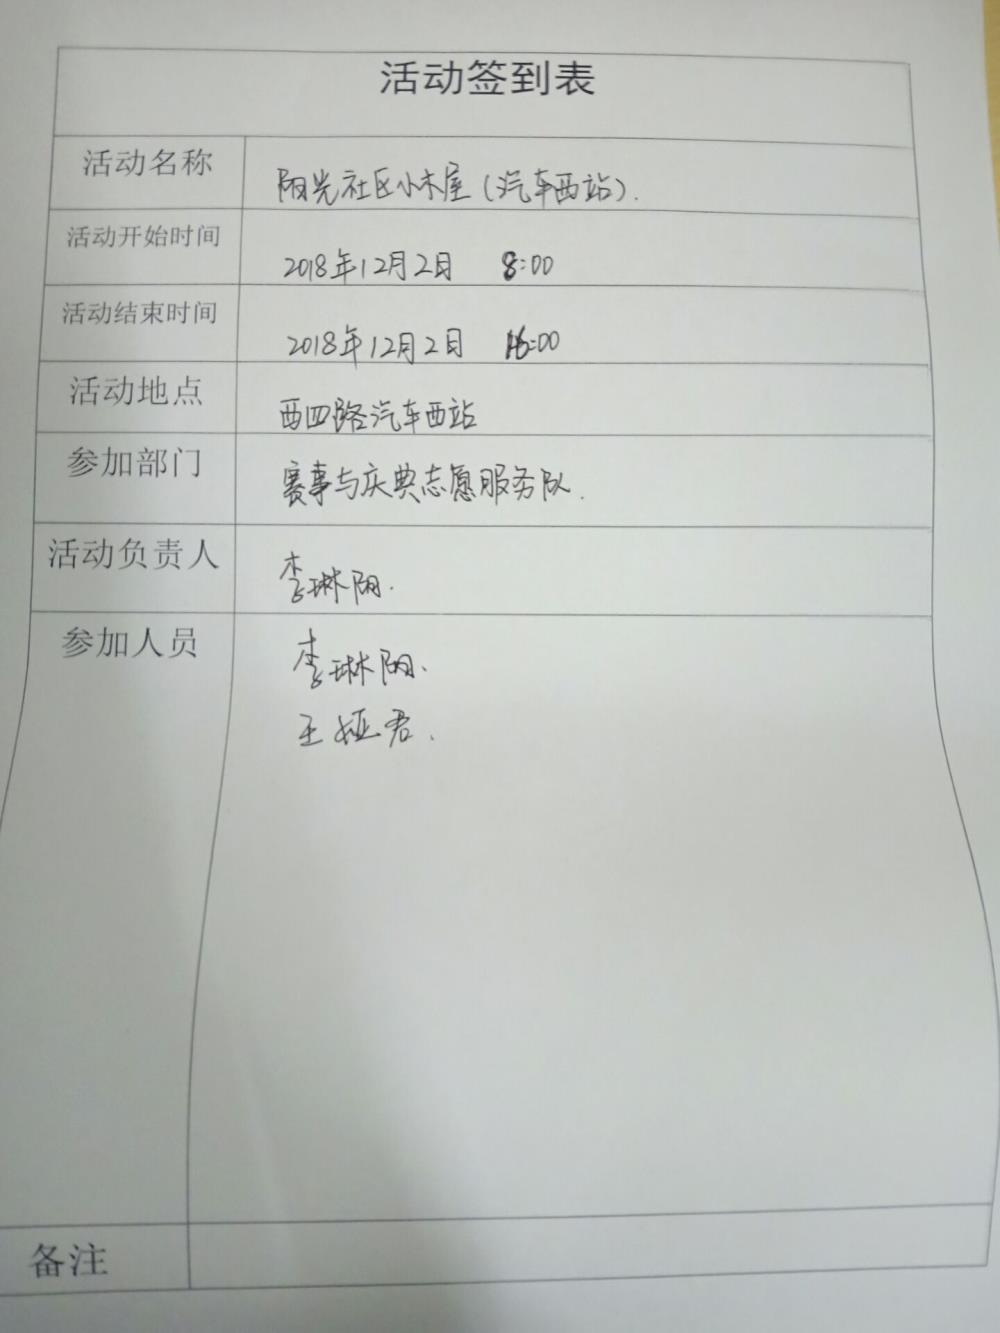 活动签到表
活动名称 阳光社区小木屋(汽车西站).
活动开始时间 2018年12月2日 8:00
活动结束时间 2018年12月2日 16:00
活动地点 西四路汽车西站
参加部门 赛事与庆典志愿服务队.
活动负责人 李琳阳.
参加人员 李琳阳.
王娅君.
备注